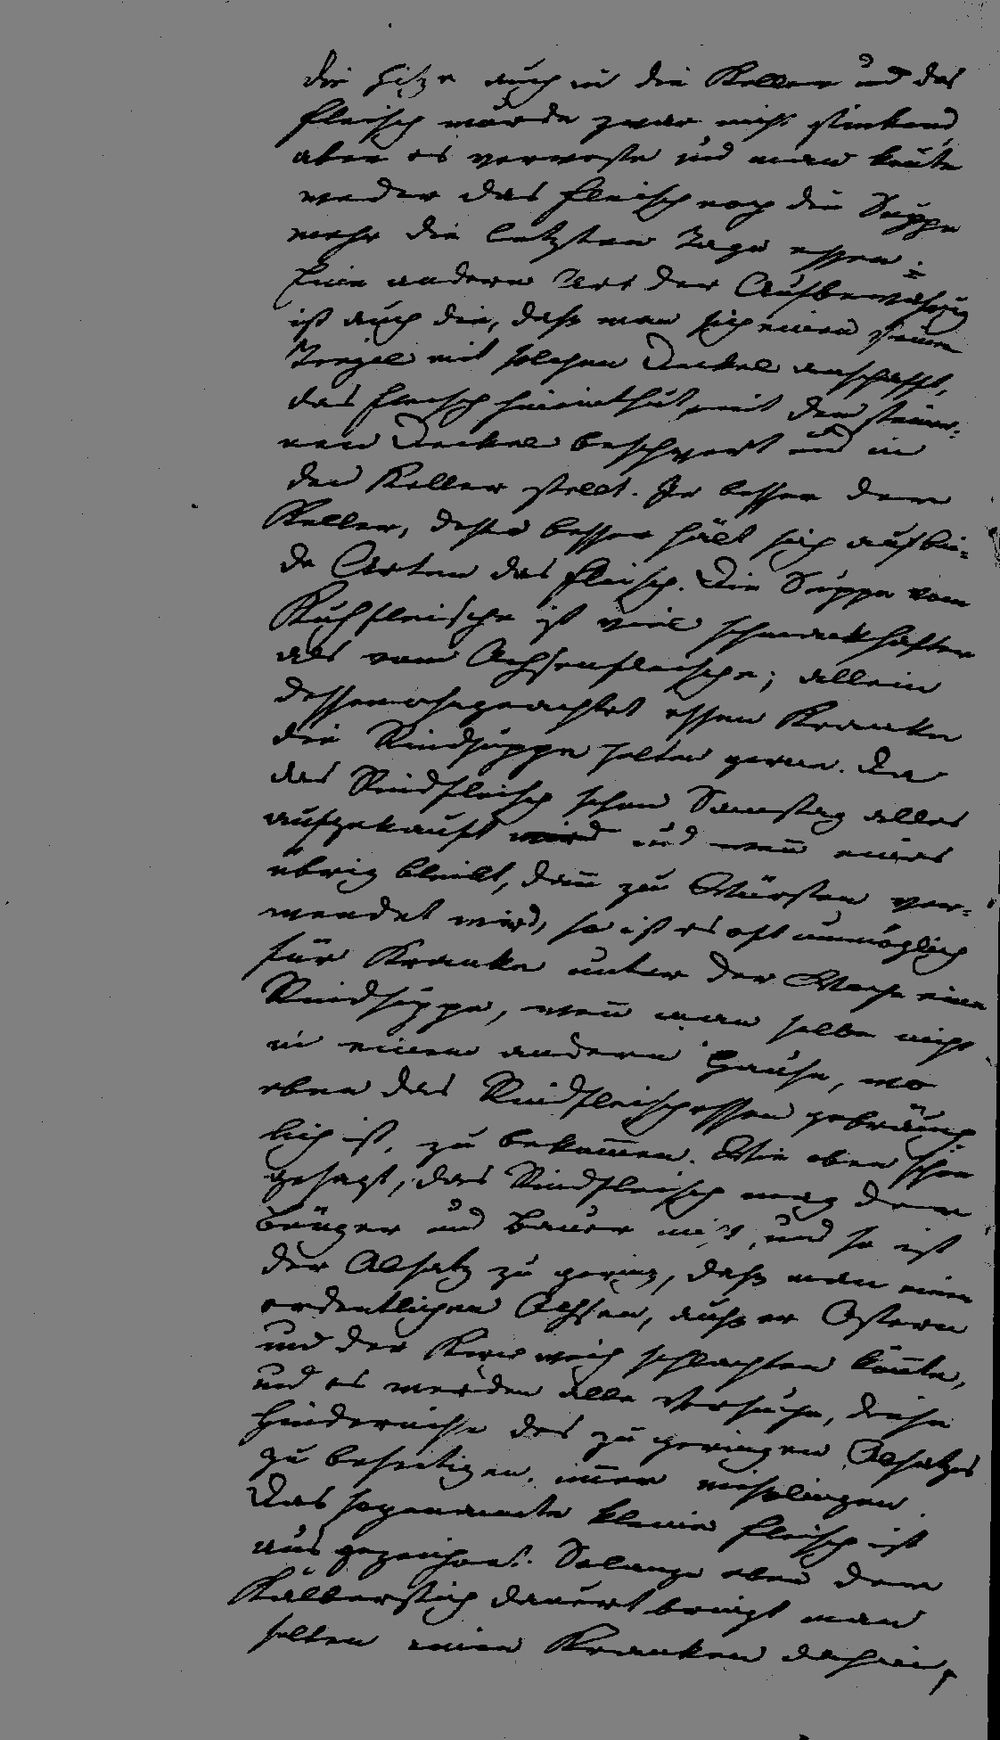 die Hitze auch in die Keller und das
Fleisch würde zwar nicht stinkend,
aber es verweste und man könte
weder das Fleisch noch die Suppe
mehr die letzten Tage essen.
Eine andere Art der Aufbewahrung
ist auch die, daß man sich einen steinern
Tiegel mit solchem Deckel anschafft,
das Fleisch hineinthut, mit dem steiner-
nen Deckel beschwert und in
den Keller stellt. Je besser der
Keller, desto besser hält sich auf bei-
de Arten das Fleisch. Die Suppe vom
Kuhfleische ist viel schmackhafter
als vom Ochsenfleische; allein
dessen ohngeachtet essen Kranke
die Rindsuppe selten gerne. Da
das Rindfleisch schon Samstag alles
aufgekauft wird und wenn eines
übrig bleibt, dann zu Würsten ver-
wendet wird, so ist es oft unmöglich
für Kranke unter der Woche eine
Rindsuppe, wenn man selbe nicht
in einem andern Hause, wo
eben das Rindfleischessen gebräuch
lich ist, zu bekommen. Wie oben schon
gesagt, das Rindfleisch mag der
Bürger und Bauer nicht, und so ist
der Absatz zu gering, daß man einen
ordentlichen Ochsen, außer Ostern
und der Kirchweih schlachten könnte,
und es werden alle Versuche, diese
Hindernisse des zu geringen Absatzes
zu beseitigen, immer mißlingen.
Das sogenannte kleine Fleisch ist
ausgezeichnet. Solange aber der
Kälberstich dauert bringt man
selten einen Kranken dahin,